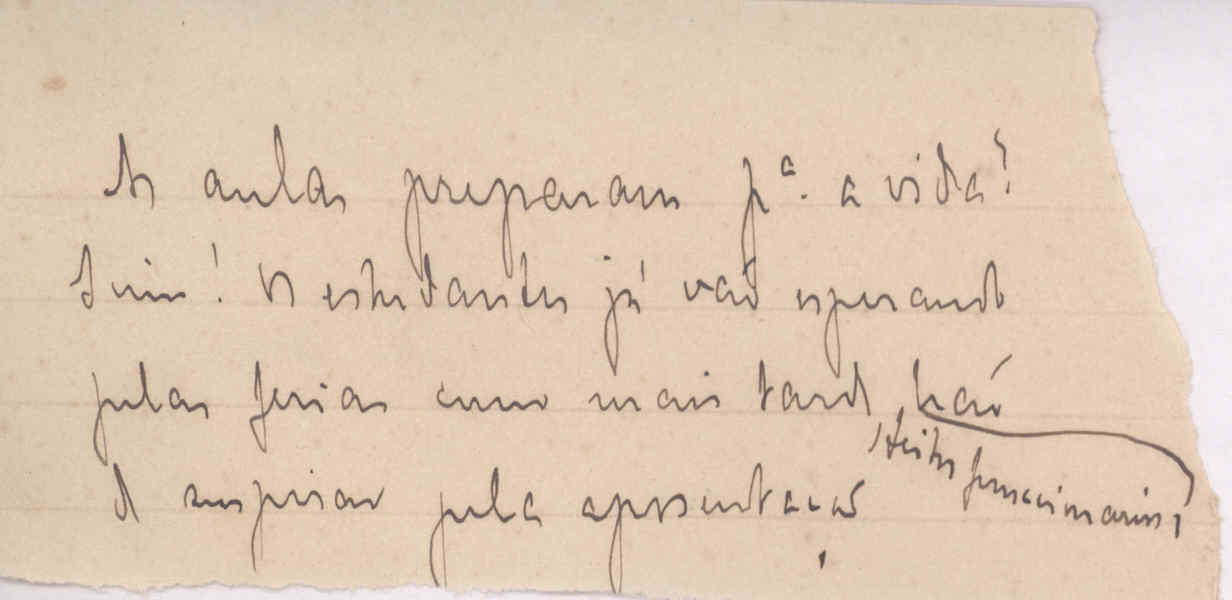 As aulas preparam pª. a vida?
Sim! Os estudantes já vão esperando
pelas ferias como mais tarde, hão
feitos funccionarios,
de suspirar pela aposentação